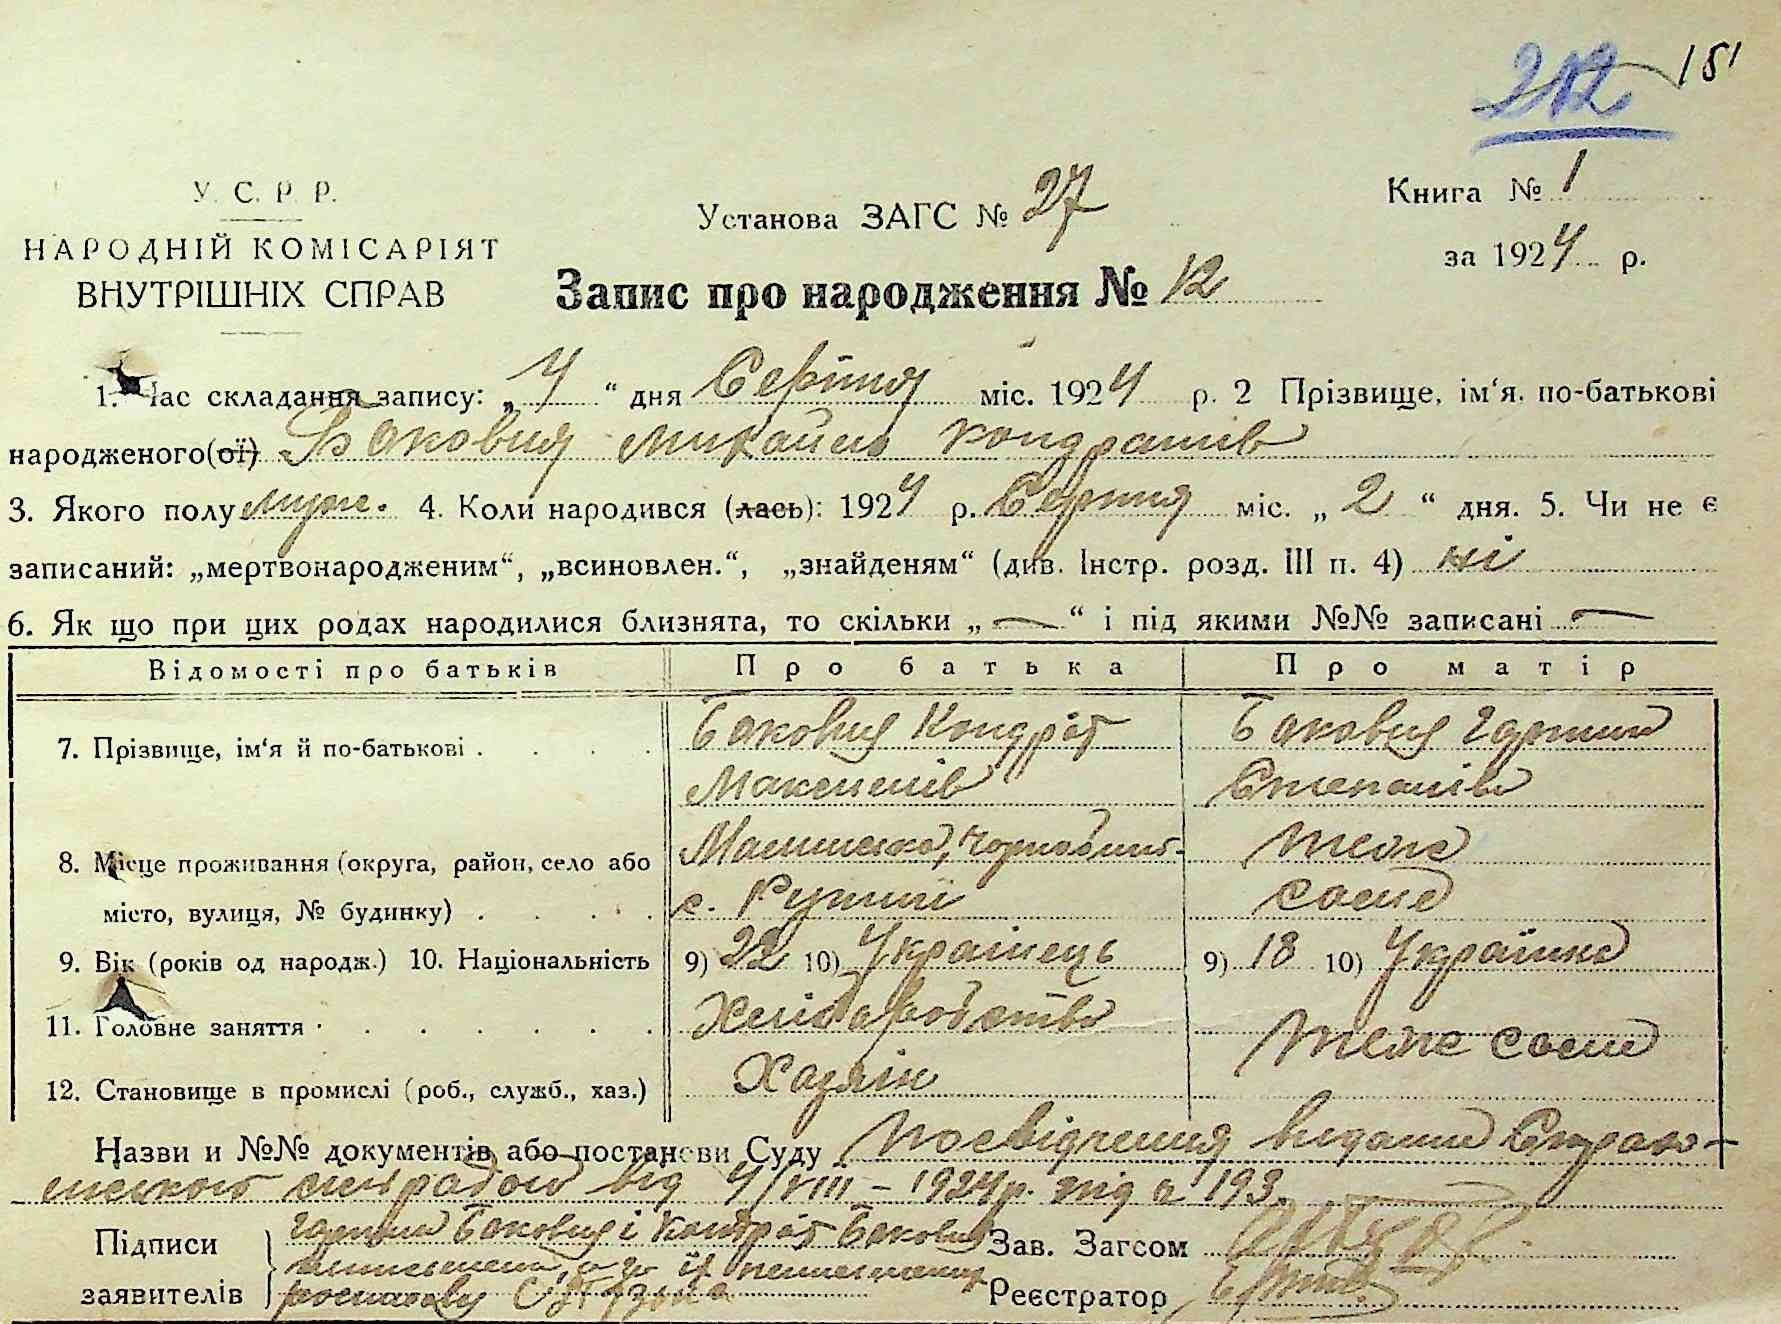 212 151
У. С. Р. Р.
НАРОДНІЙ КОМІСАРІЯТ
ВНУТРІШНІХ СПРАВ
Установа ЗАГС № 27
Книга № 1
за 1924 р.
Запис про народження № 12
1. Час складання запису: „4“ дня Серпня міс. 1924 р. 2 Прізвище, ім‘я, по-батькові
народженого(ої) Баковця Михайло Кондратів
3. Якого полу муж. 4. Коли народився (лась): 1924 р. Серпня міс. „2“ дня. 5. Чи не є
записаний: „мертвонародженим“, „всиновлен.“, „знайденям“ (див. Інстр. розд. III п. 4) ні
6. Як що при цих родах народилися близнята, то скільки „—“ і під якими №№ записані —
Відомості про батьків Про батька Про матір
7. Прізвище, ім‘я й по-батькові . . . . Кондрат
Степанів
8. Місце проживання (округа, район, село або теж
місто, вулиця, № будинку) . . . . с. саме
9. Вік (років од народж.) 10. Національність 9) 22 10) Українець 9) 18 10) Українка
11. Головне заняття . . . . . . Хліборобство теж саме
12. Становище в промислі (роб., служб., хаз.) Хазяін
Назви и №№ документів або постанови Суду Посвідчення видане
від 4/VIII – 1924 р. під № 193.
Підписи і Кондрат Зав. Загсом
заявителів Реєстратор